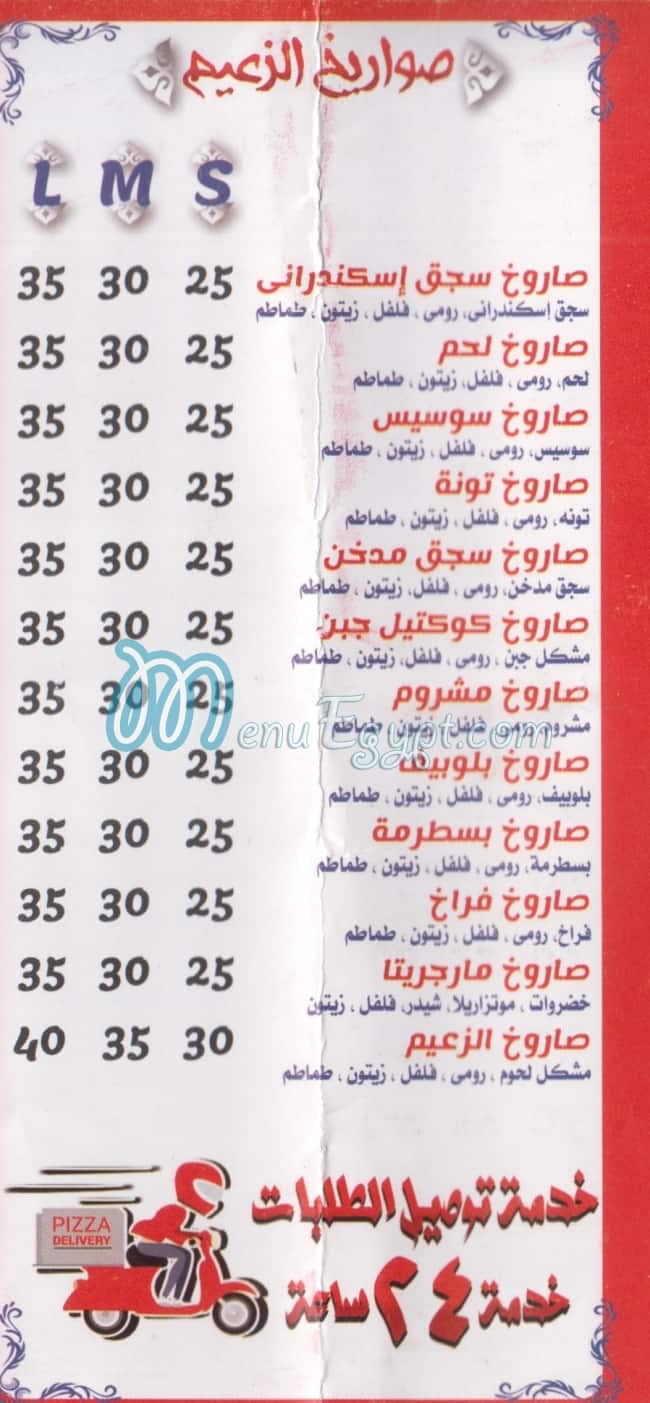 صواريخ الزعيم
L M S
صاروخ سجق إسكندرانى 25 30 35
سجق إسكندرانى، رومى ، فلفل ، زيتون ، طماطم
صاروخ لحم 25 30 35
لحم، رومى ، فلفل، زيتون ، طماطم
صاروخ سوسيس 25 30 35
سوسيس، رومى ، فلفل ، زيتون ، طماطم
صاروخ تونة 25 30 35
تونه، رومى ، فلفل ، زيتون ، طماطم
صاروخ سجق مدخن 25 30 35
سجق مدخن، رومى ، فلفل، زيتون ، طماطم
صاروخ كوكتيل جبن 25 30 35
مشكل جبن ، رومى ، فلفل، زيتون ، طماطم
صاروخ مشروم 25 30 35
مشروم، رومى ، فلفل ، زيتون ، طماطم
صاروخ بلوبيف 25 30 35
بلوبيف، رومى ، فلفل ، زيتون ، طماطم
صاروخ بسطرمة 25 30 35
بسطرمة، رومى ، فلفل ، زيتون ، طماطم
صاروخ فراخ 25 30 35
فراخ، رومى ، فلفل ، زيتون ، طماطم
صاروخ مارجريتا 25 30 35
خضروات ، موتزاريلا، شيدر، فلفل ، زيتون
صاروخ الزعيم 30 35 40
مشكل لحوم ، رومى ، فلفل ، زيتون ، طماطم
خدمة توصيل الطلبات
خدمة ٢٤ ساعة
PIZZA
DELIVERY
MenuEgypt.com